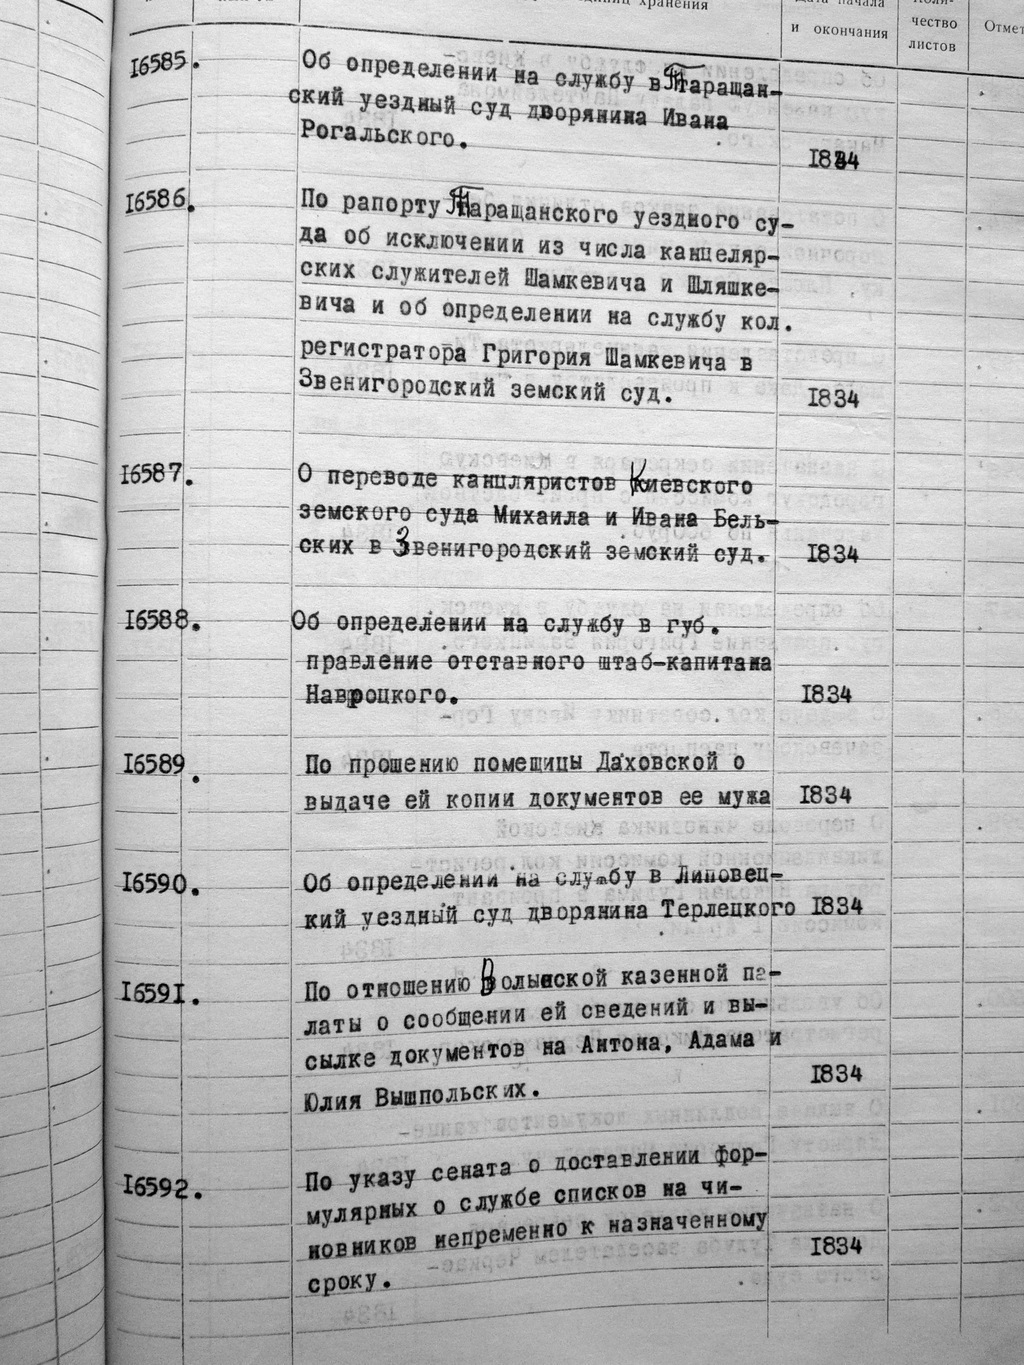 хранения
и окончания
чество
листов
16585.
Об определении на службу в Таращан-
ский уездный суд дворянина Ивана
Рогальского.
1834
16586.
По рапорту Таращанского уездного су-
да об исключении из числа канцеляр-
ских служителей Шамкевича и Шляшке-
вича и об определении на службу кол.
регистратора Григория Шамкевича в
Звенигородский земский суд.
1834
16587.
О переводе канцляристов Киевского
земского суда Михаила и Ивана Бель-
ских в Звенигородский земский суд.
1834
16588.
Об определении на службу в губ.
правление отставного штаб-капитана
Навроцкого.
1834
16589.
По прошению помещицы Даховской о
выдаче ей копии документов ее мужа
1834
16590.
Об определении на службу в Липовец-
кий уездный суд дворянина Терлецкого
1834
16591.
По отношению Волынской казенной па-
латы о сообщении ей сведений и вы-
сылке документов на Антона, Адама и
Юлия Вышпольских.
1834
16592.
По указу сената о доставлении фор-
мулярных о службе списков на чи-
новников непременно к назначенному
сроку.
1834